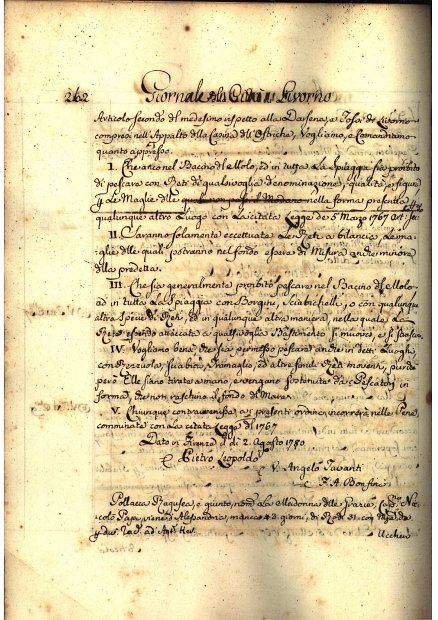 262 Giornale di Livorno
Articolo secondo del medesimo rispetto alla Darsena, e Fossi di Livorno
compresi nell'Appalto della Ostriche, Vogliamo, e Comandiamo
quanto appresso.
I. Che anco nel Bacino del Molo, ed in tutta La Spiaggia sia proibito
di pescare con Reti di qualsivoglia denominazione, qualità,
Le Maglie delle nella forma prescritta
qualunque altro Luogo con La citata Legge de 5 Marzo 1767
II. Saranno solamente eccettuate Le Reti a bilancia, Le ma-
glie delle quali potranno nel fondo essere di Misura anche minore
della predetta.
III. Che sia generalmente proibito pescare nel Bacino del Molo
ed in tutta La Spiaggia con o con qualunque
altra specie di Reti, ed in qualunque altra maniera, nella quale La
Rete essendo attaccata a qualsivoglia Bastimento si muove, e si
IV. Vogliamo bensì, che sia permesso pescare anche in detti Luoghi
con Rezzuola, Sciabica, Tramaglio, ed altre simili Reti moventi, purchè
però Elle siano tirate a mano, e vengano sostenute da Pescatori in
forma, che non raschino il fondo del Mare.
V. Chiunque contravverrà a presenti ordini, incorrerà nelle Pene
comminate con La citata Legge del 1767
Dato in Firenze Li 2. Agosto 1780
Pietro Leopoldo
V. Angelo Tavanti
F. A. Bonfini
Pollacca Ragusea, e giunto, La Madonna delle Grazie, Cap. Nic-
colò viene d'Alessandria, manca giorni, di Rodi 31 con